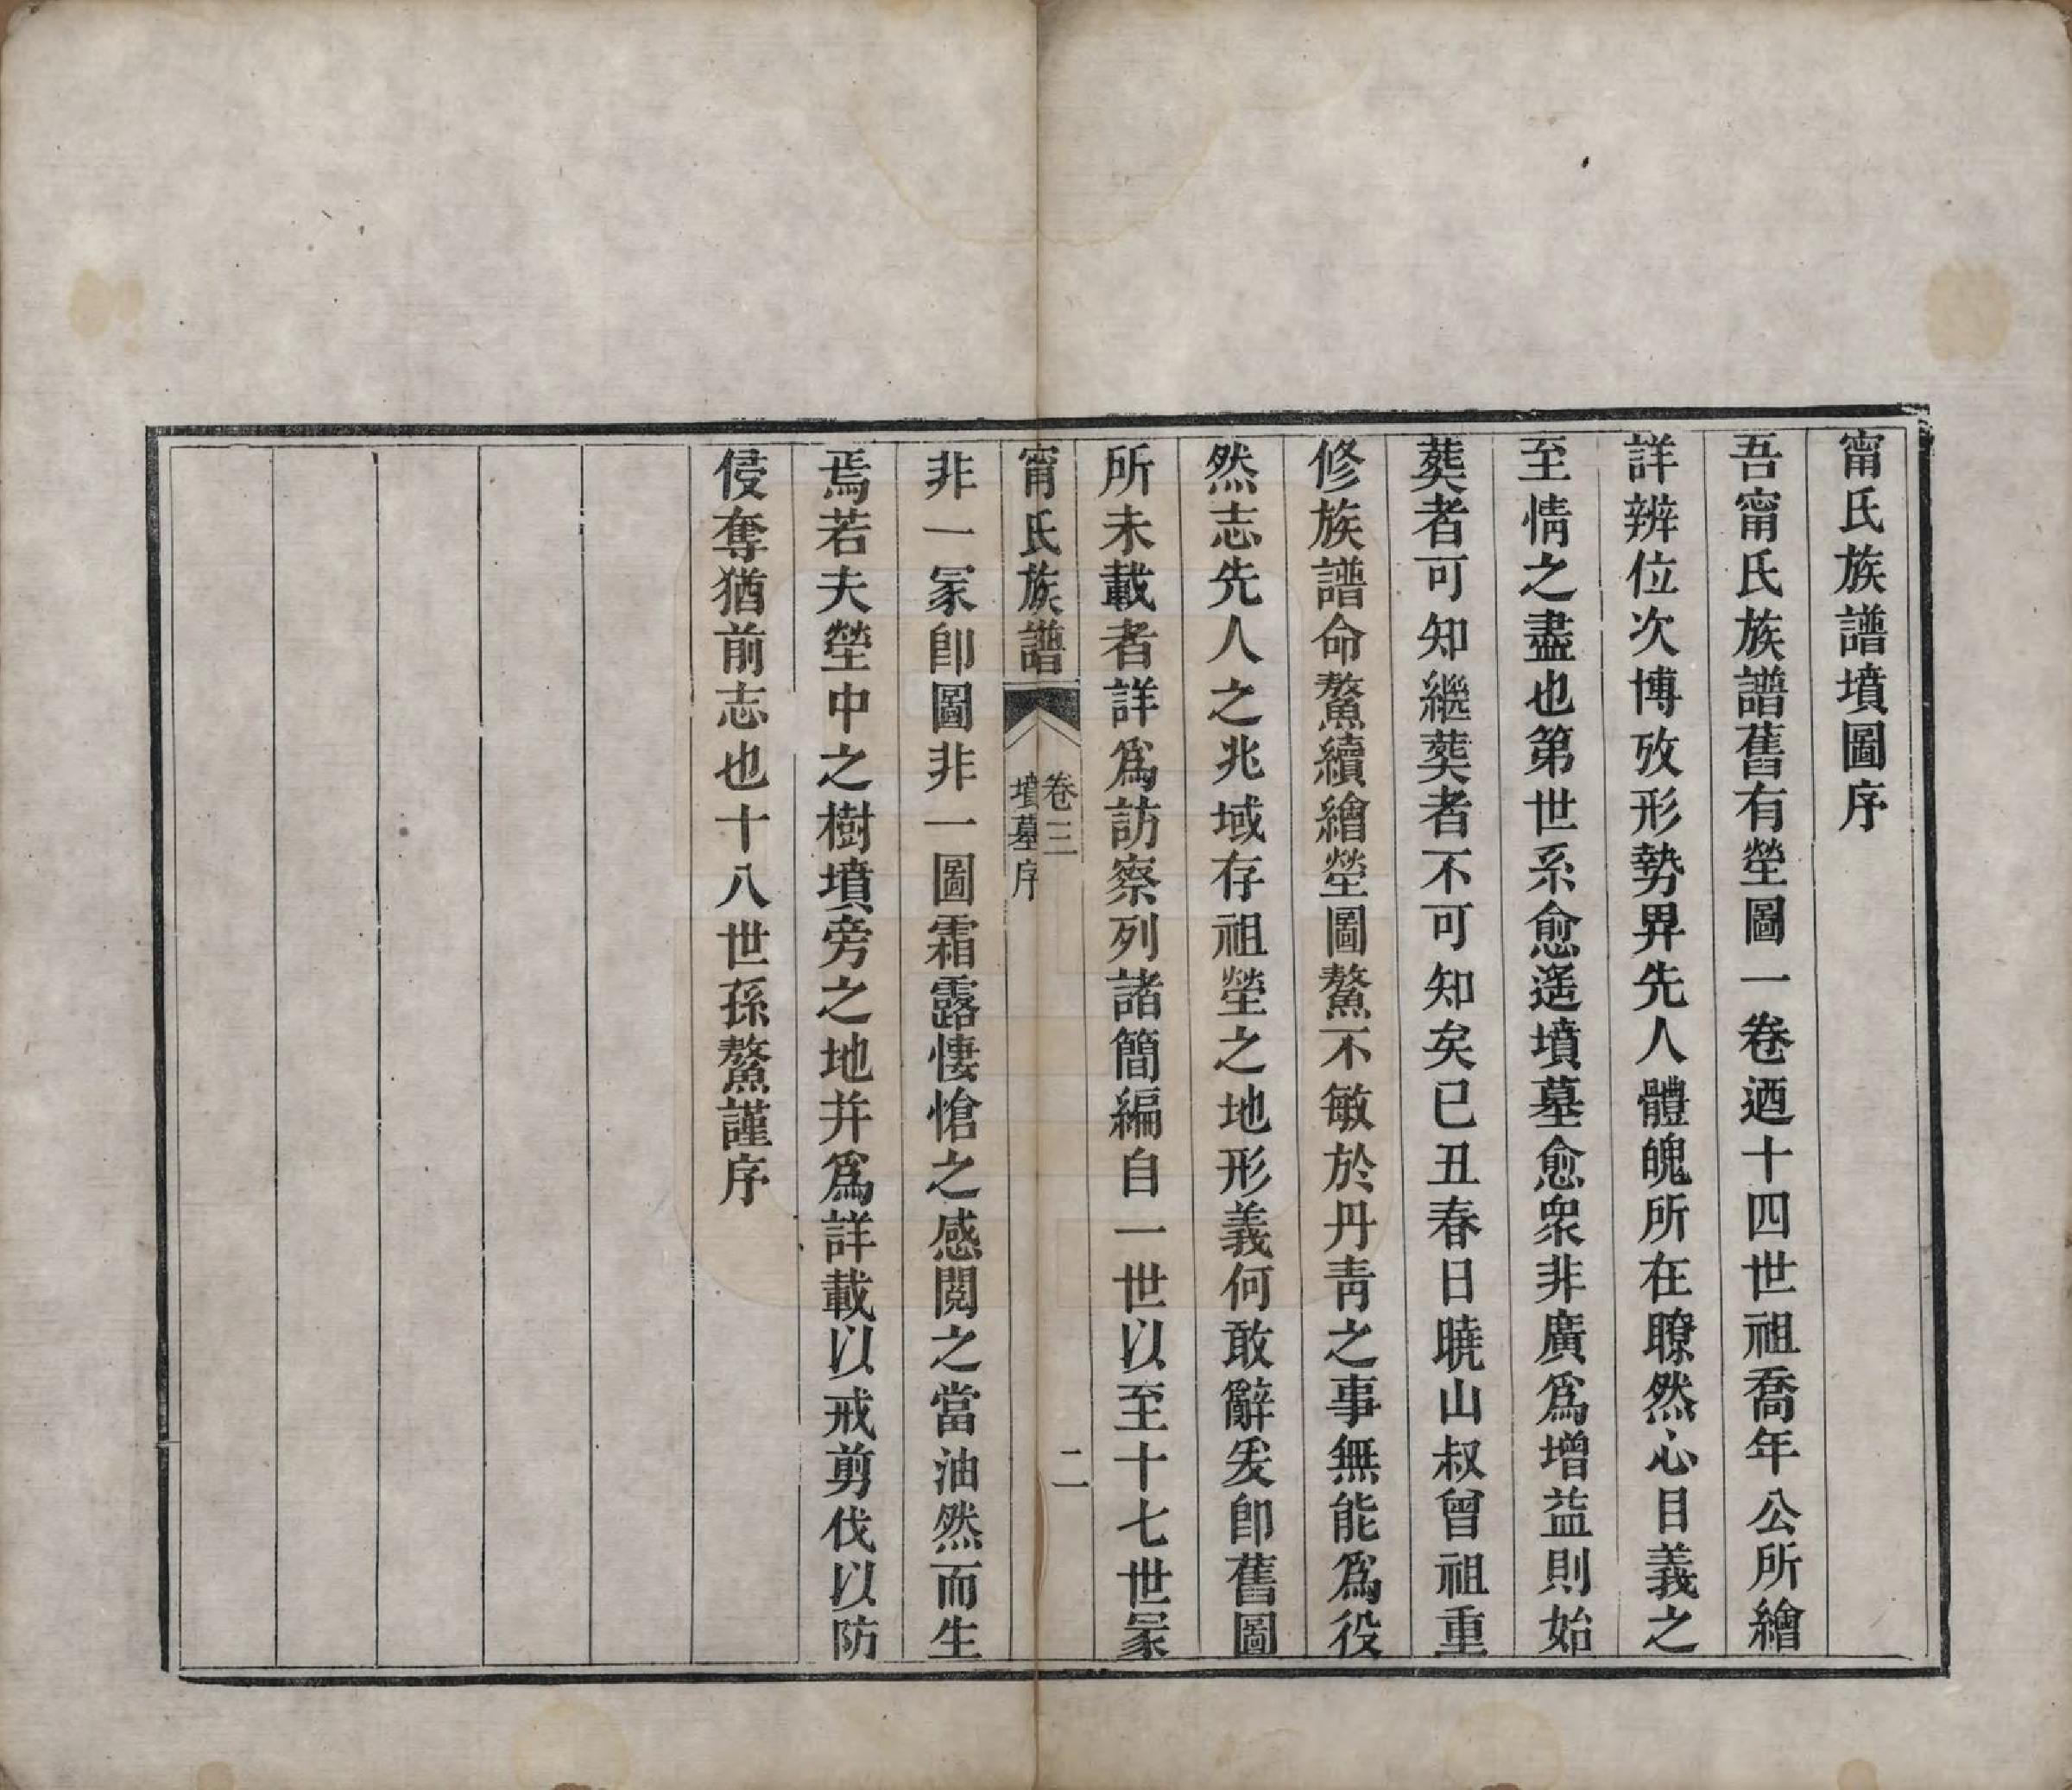 甯氏族譜墳圖序
吾甯氏族譜舊有塋圖一卷迺十四世祖喬年公所繪
詳辨位次博攷形勢畀先人體魄所在瞭然心目義之
至情之盡也第世系愈遙墳墓愈衆非廣爲增益則始
葬者可知繼葬者不可知矣已丑春日曉山叔曾祖重
修族譜命鰲續繪塋圖鰲不敏於丹青之事無能爲役
然志先人之兆域存祖塋之地形義何敢辭爰卽舊圖
所未載者詳爲訪察列諸簡編自一世以至十七世冡
甯氏族譜
卷三
墳墓序
二
非一冡卽圖非一圖霜露悽愴之感閱之當油然而生
焉若夫塋中之樹墳旁之地并爲詳載以戒剪伐以防
侵奪猶前志也十八世孫鰲謹序